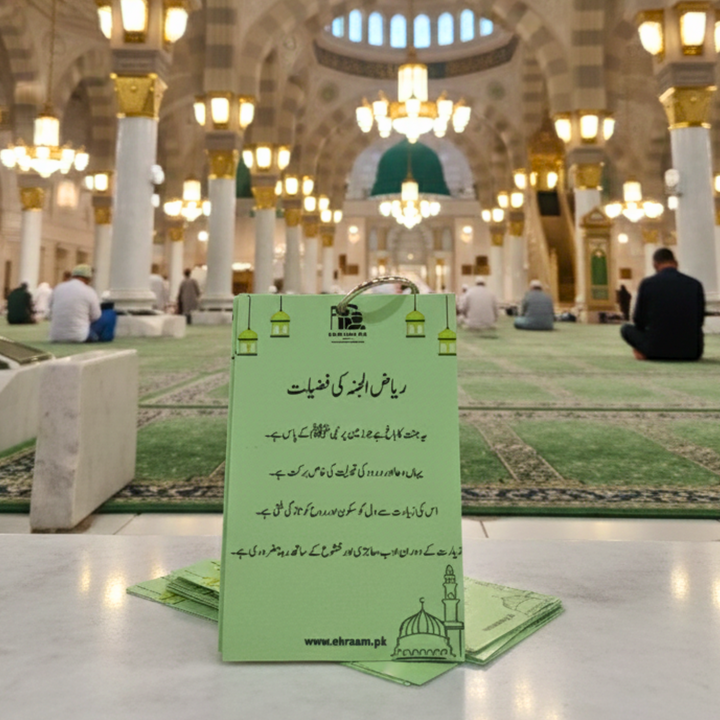 ریاض الجنہ کی فضیلت
یہ جنت کا باغ ہے جو زمین پر نبی ﷺ کے پاس ہے۔
یہاں دعا اور درود کی قبولیت کی خاص برکت ہے۔
اس کی زیارت سے دل کو سکون اور روح کو تازگی ملتی ہے۔
زیارت کے دوران ادب، عاجزی اور خشوع کے ساتھ رہنا ضروری ہے۔
www.ehraam.pk